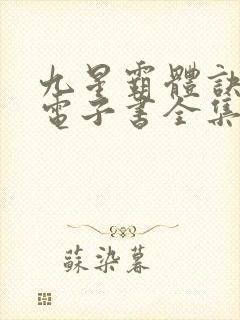 九星霸體訣
電子書全集
蘇染暮